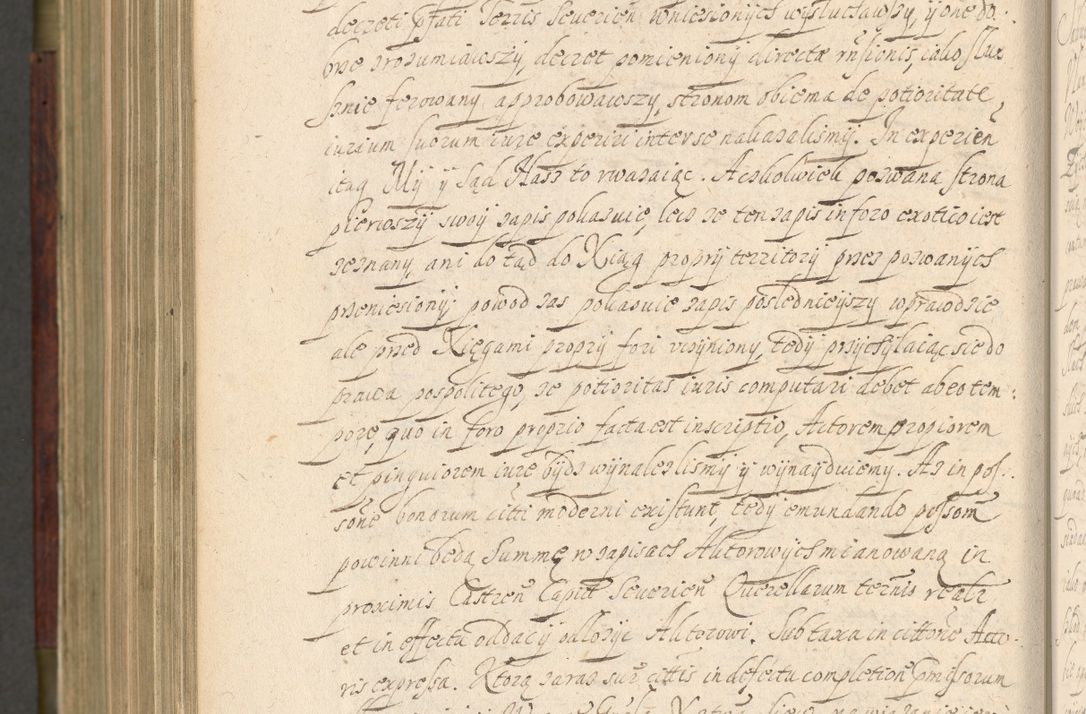 decreti p̃fati Terris Severien̄ wniesionych wysłuchawszy, y one do:
brze zrozumiawszy, decret pomieniony directæ rm̄sionis, iako słusz
sznie ferowany approbowawszy, stronom obiema de potioritate,
iurium suorum iure experiri inter se nakazalismy. In experien̄
itaq My y Sąd Nasz to uwazaiąc. Aczkolwiek pozwana strona
pierwszy swoy zapis pokazuie, lecz ze ten zapis in foro exotico iest
zeznany, ani do tąd do Xiąg proprij territorij przez pozwanych
przeniesiony; powod zas pokazuie zapis poslednieyszy wprawdzie
ale przed Xięgami proprij fori uczyniony, tedy przychylaiąc sie do
prawa pospolitego, ze potioritas iuris computari debet ab eo tem:
pore, quo in foro proprio facta est inscriptio, Actorem propiorem
et pinguiorem iure bydz wynalezlismy y wynayduiemy. Az in pos:
sone bonorum citti moderni existunt, tedy emundando possom̄
powinni będą Summę w zapisach Aktorowych mianowaną in
proximis Castren̄ Capitt Severien̄ Querellarum terminis realr
et in effectu oddac y odlozyc Aktorowi. Sub taxa in cittone Acto:
ris expressa. Ktorą zaraz sur̃ cittis in defectu completione p̃missorum